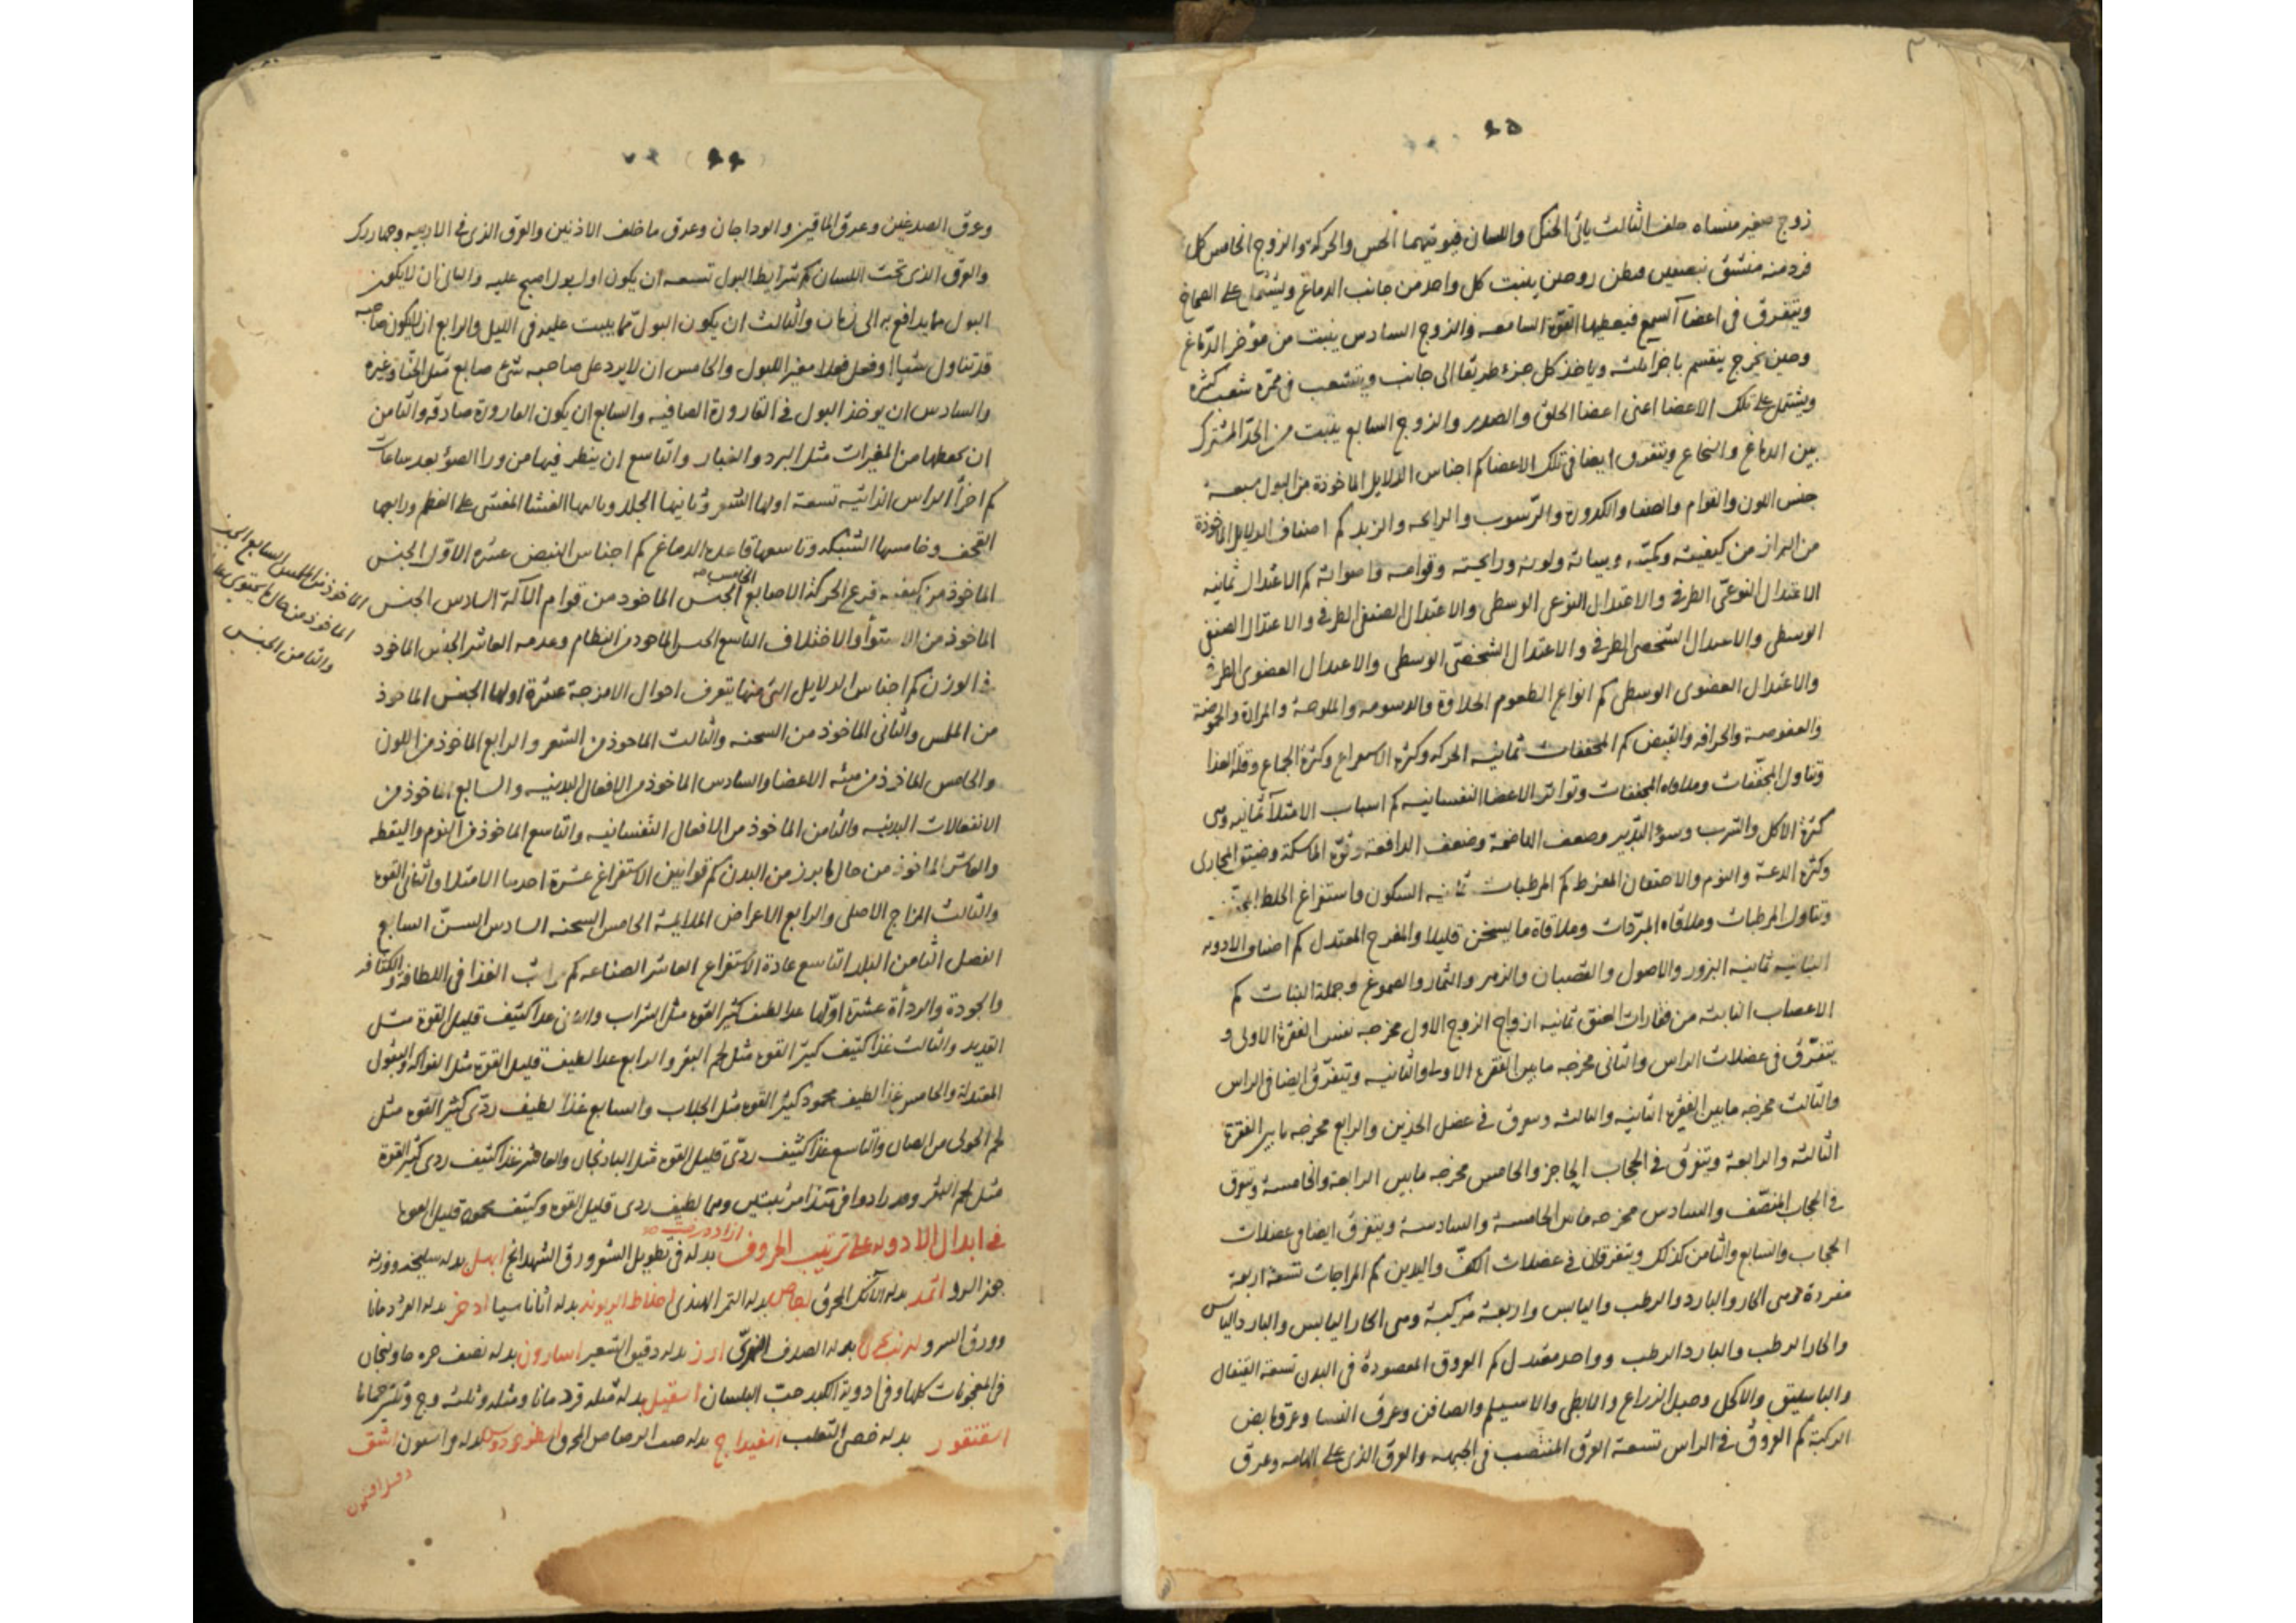 ٤٥
زوج صغير منشاه خلف الثالث يأتي الحنك واللسان فيؤتيهما الحس والحركة والزوج الخامس كل
فرد منه منشق بنصفين فيظن زوجين ينبت كل واحد من جانب الدماغ ويشتمل على الصماخ
ويتفرق في اعضا السمع فيعطيها القوة السامعه والزوج السادس ينبت من مؤخر الدماغ
وحين يخرج ينقسم باجزا ثلثه وياخذ كل جزء طريقا الى جانب ويتشعب في ممره شعب كثيره
ويشتمل على تلك الاعضا اعنى اعضا الحلق والصدر والزوج السابع ينبت من الحد المشترك
بين الدماغ والنخاع ويتفرق ايضا في تلك الاعضا كم اجناس الدلايل الماخوذة من البول سبعه
جنس اللون والقوام والصفا والكدورة والرسوب والرايحه والزبد كم اصناف الدلايل الماخوذة
من البراز من كيفيته وكميته ولونه ورايحته وقوامه واصواته كم الاعتدال ثمانيه
الاعتدال النوعي الطرفي والاعتدال النوعي الوسطى والاعتدال الصنفي الطرفي والاعتدال الصنفي
الوسطى والاعتدال الشخصي الطرفي والاعتدال الشخصي الوسطى والاعتدال العضوى الطرفي
والاعتدال العضوى الوسطى كم انواع الطعوم الحلاوة والدسومه والملوحة والمرارة والحموضة
والعفوصة والحرافه والقبض كم المجففات ثمانيه الحركه وكثرة الاستفراغ وكثرة الجماع وقلة الغذا
وتناول المجففات وملاقاه المجففات وتواتر الاعراض النفسانيه كم اسباب الامتلا ثمانيه وهى
كثرة الاكل والشرب وسوء التدبير وضعف الهاضمة وضعف الدافعة وقوة الماسكة وضيق المجارى
وكثرة الدعة والنوم والاحتقان المفرط كم المرطبات ثمانيه السكون واستفراغ الخلط المجفف
وتناول المرطبات وملاقاه المبردات وملاقاة ما يسخن قليلا والفرح المعتدل كم اصناف الادويه
النباتيه ثمانيه البزور والاصول والقضبان والزهر والثمار والصموغ وجملة النبات كم
الاعصاب النابتة من فقارات العنق ثمانيه ازواج الزوج الاول مخرجه نفس الفقرة الاولى و
يتفرق في عضلات الراس والثانى مخرجه ما بين الفقرة الاولى والثانيه ويتفرق ايضا في الراس
والثالث مخرجه ما بين الفقرة الثانيه والثالثه ويتفرق في عضل الخدين والرابع مخرجه ما بين الفقرة
الثالثه والرابعة ويتفرق في الحجاب الحاجز والخامس مخرجه ما بين الرابعة والخامسة ويتفرق
في الحجاب المنصف والسادس مخرجه ما بين الخامسة والسادسة ويتفرق ايضا في عضلات
الحجاب والسابع والثامن كذلك ويتفرقان في عضلات الكف واليدين كم المزاجات تسعة اربعة
مفردة وهى الحار والبارد والرطب واليابس واربعة مركبة وهى الحار اليابس والبارد اليابس
والحار الرطب والبارد الرطب وواحد معتدل كم العروق المفصودة في البدن تسعة القيفال
والباسليق والاكحل وحبل الذراع والابطى والاسيلم والصافن وعرق النسا وعرق مابض
الركبة كم العروق في الراس تسعة العرق المنتصب في الجبهه والعرق الذى على الهامه وعرق
٤٤
وعرق الصدغين وعرق الماقين والوداجان وعرق ما خلف الاذنين والعرق الذى في الارنبه وجهاررك
والعرق الذى تحت اللسان كم شرايط البول تسعه ان يكون اول بول اصبح عليه والثانى ان لا يكون
البول مما يدافع به الى زمان والثالث ان يكون البول مما يبيت عليه في الليل والرابع ان لا يكون صاحبه
قد تناول شيا او فعل فعلا مغيرا للبول والخامس ان لا يرد على صاحبه شى صابغ مثل الحنا وغيره
والسادس ان يوخذ البول في القارورة الصافيه والسابع ان يكون القارورة صادقه والثامن
ان يحفظها من المغيرات مثل البرد والغبار والتاسع ان ينظر فيها من ورا الضوء بعد ساعات
كم اجزآ الراس الذاتيه تسعة اولها الشعر وثانيها الجلد وثالثها الغشا المغشى على العظم ورابعها
القحف وخامسها الشبكه وتاسعها قاعدة الدماغ كم اجناس النبض عشره الاول الجنس
الماخوذ من كيفيه قرع الحركة الاصابع الخامس الجنس الماخوذ من قوام الآلة السادس الجنس
الماخوذ من الملمس السابع الجنس
الماخوذ من حال ما يحتوى عليه
والثامن الجنس
الماخوذ من الاستوآ والاختلاف التاسع الجنس الماخوذ من النظام وعدمه العاشر الجنس الماخوذ
من الوزن كم اجناس الدلايل التى منها يتعرف احوال الامزجة عشرة اولها الجنس الماخوذ
من الملمس والثانى الماخوذ من السحنه والثالث الماخوذ من الشعر والرابع الماخوذ من اللون
والخامس الماخوذ من هيئه الاعضا والسادس الماخوذ من الافعال البدنيه والسابع الماخوذ من
الانفعالات البدنيه والثامن الماخوذ من الافعال النفسانيه والتاسع الماخوذ من النوم واليقظه
والعاشر الماخوذ من حال ما يبرز من البدن كم قوانين الاستفراغ عشرة احدها الامتلا والثانى القوه
والثالث المزاج الاصلى والرابع الاعراض الملايمة الخامس السحنه السادس السن السابع
الفصل الثامن البلد التاسع عادة الاستفراغ العاشر الصناعه كم مراتب الغذا في اللطافة والكثافه
والجودة والردأة عشرة اولها غذا لطيف كثير القوه مثل الشراب والثانى غذا كثيف قليل القوة مثل
القديد والثالث غذا كثيف كثير القوه مثل لحم البقر والرابع غذا لطيف قليل القوة مثل الفواكه والبقول
المعتدلة والخامس غذا لطيف محمود كثير القوه مثل الجلاب والسابع غذا لطيف ردى كثير القوه مثل
لحم الحولى من الضان والتاسع غذا كثيف ردى قليل القوه مثل الباذنجان والعاشر غذا كثيف ردى كثير القوة
مثل لحم البقر وقد زادوا في هذا مرتبتين وهما لطيف ردى قليل القوه وكثيف محمود قليل القوه
في ابدال الادويه على ترتيب الحروف ازاددرخت بدله في تطويل الشعر ورق الشهدانج ابهل بدله سليخه ووزنه
جوز السرو اثمد بدله الآنك المحرق اجاص بدله التمر الهندى بدله اذخر بدله
وورق السرو بدله الصدف ارز بدله دقيق الشعير اسارون بدله نصف
في المعجونات كلها وفي ادوية الكبد حب البلسان اسقيل بدله مثله قردمانا ومثله وثلثه وج وثلثى حماما
اسقنقور بدله خصى الثعلب اسفيداج بدله خبث الرصاص المحرق اسطوخودوس بدله فراسيون اشق